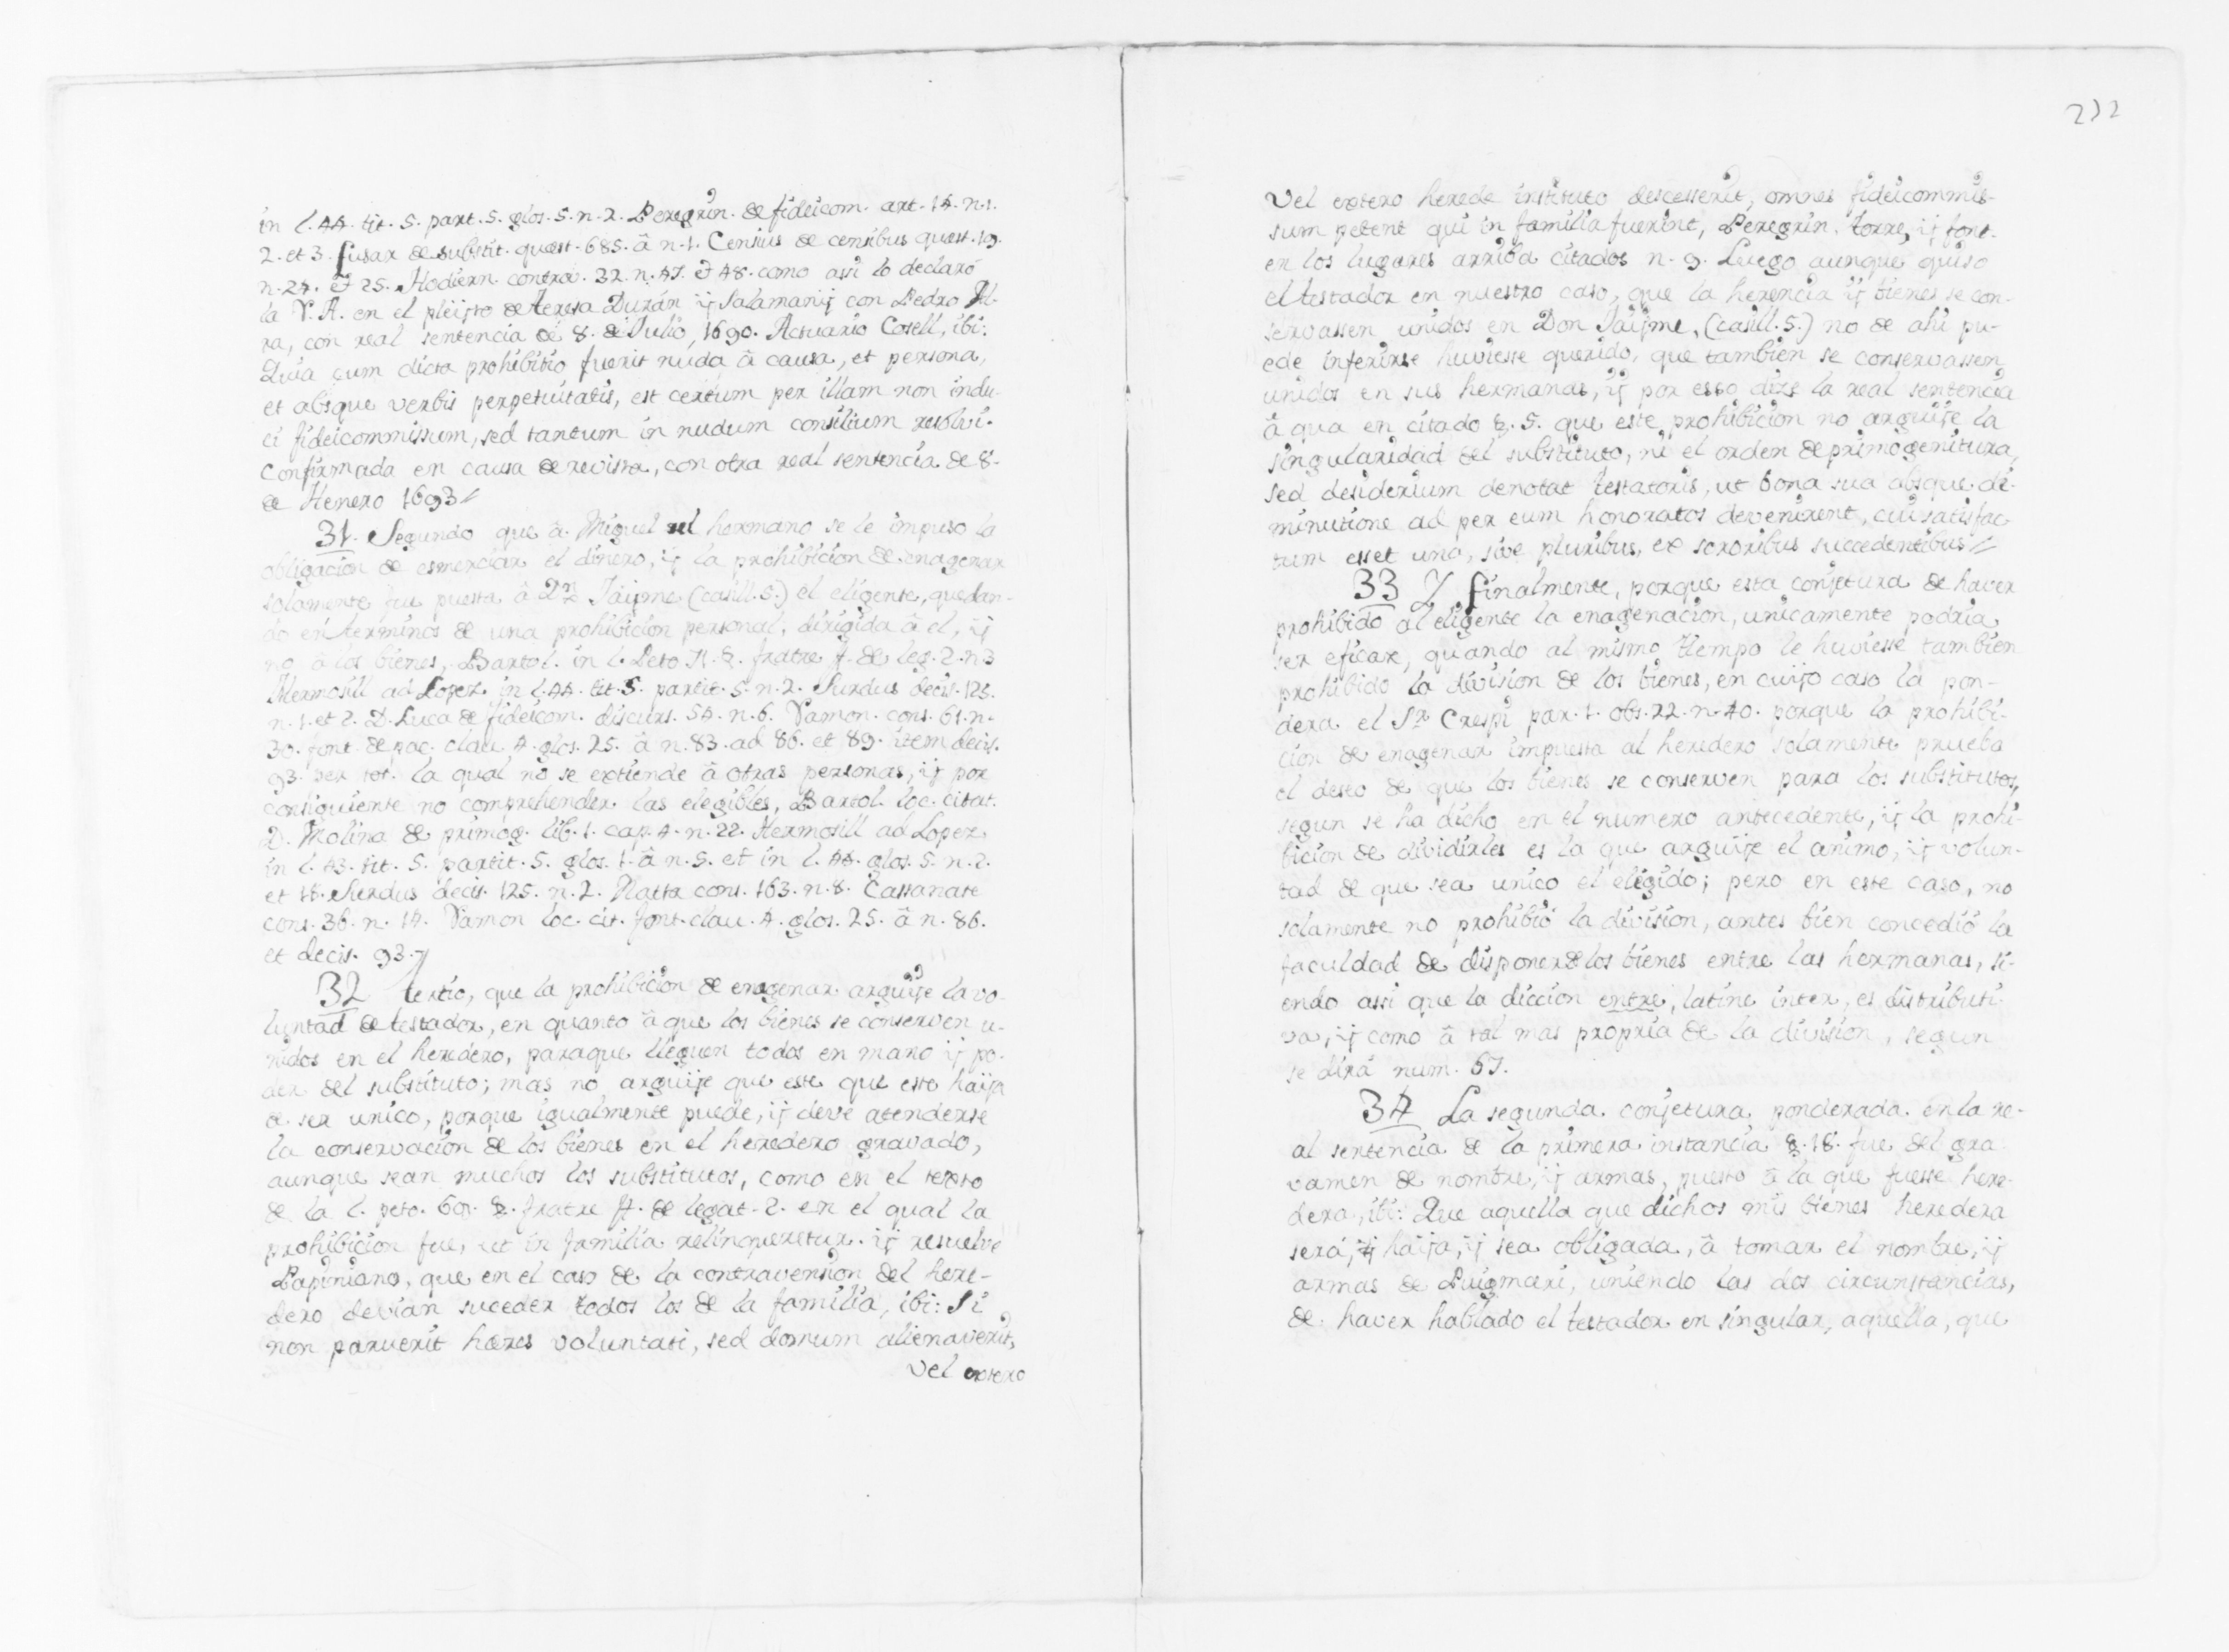 in l. 44. tit. 5. part. 5. glos. 5. n. 2. Peregrin. de fideicom. art. 14. n. 1.
2. et 3. fusar de substit. quæst. 685. â n. 1. Censius de censibus quæst. 19.
n. 24. et 25. Hodiern. controv. 32. n. 47. et 48. como assi lo declaró
la R. A. en el pleijto de teresa Durán ij Salamanij con Pedro
ra, con real sentencia de 8. de Julio, 1690. Actuario Cosell, ibi:
Quia cum dicta prohibitio fuerit nuda â causa, et persona,
et absque verbis perpetuitatis, est certum per illam non indu-
ci fideicommissum, sed tantum in nudum consilium resolvi.
confirmada en causa de revista, con otra real sentencia de 8.
de Henero 1693
31. Segundo que â Miguel el hermano se le impuso la
obligacion de esmerciar el dinero, ij la prohibicion de enagenar
solamente fue puesta â Dn Jaijme (casill. 5.) el eligente, quedan-
do en terminos de una prohibicion personal, dirigida â el, ij
no â los bienes, Bartol. in l. Peto §. fratre ff. de leg. 2. n. 3
Hermosill ad Lopez in l. 44. tit. 5. partit. 5. n. 2. Surdus decis. 125.
n. 1. et 2. D. Luca de fideicom. discurs. 54. n. 6. Ramon. cons. 61. n.
30. font. de pac. clau. 4. glos. 25. â n. 83. ad 86. et 89. item decis.
93. per tot. la qual no se extiende â otras personas, ij por
consiguiente no comprehender las elegibles, Bartol. loc. citat.
D. Molina de primog. lib. 1. cap. 4. n. 22. Hermosill ad Lopez
in l. 43. tit. 5. partit. 5. glos. 1. â n. 5. et in l. 44. glos. 5. n. 2.
et 18. Surdus decis. 125. n. 2. Natta cons. 163. n. 8. Cassanate
cons. 36. n. 14. Ramon loc. cit. font. clau. 4. glos. 25. â n. 86.
et decis. 93.
32 tertio, que la prohibicion de enagenar arguije la vo-
luntad de testador, en quanto â que los bienes se conserven u-
nidos en el heredero, paraque lleguen todos en mano ij po-
der del substituto; mas no arguije que este que este haija
de ser unico, porque igualmente puede, ij deve atenderse
la conservacion de los bienes en el heredero gravado,
aunque sean muchos los substitutos, como en el texto
de la l. peto. 69. §. fratre ff. de legat. 2. en el qual la
prohibicion fue, ut in familia relinqueretur. ij resuelve
Papiniano, que en el caso de la contravension del here-
dero devian suceder todos los de la familia, ibi: Si
non paruerit hæres voluntati, sed domum alienaverit,
vel extero
232
vel extero herede instituto descesserit, omnes fideicommis-
sum petent qui in familia fuerint, Peregrin. torre, ij font.
en los lugares arriba citados n. 9. Luego aunque quiso
el testador en nuestro caso, que la herencia ij bienes se con-
servassen unidos en Don Jaijme, (casill. 5.) no de ahi pu-
ede inferirse huviesse querido, que tambien se conservassen
unidos en sus hermanas, ij por esso dize la real sentencia
â qua en citado §. 5. que este prohibicion no arguije la
singularidad del substituto, ni el orden de primogenitura,
sed desiderium denotat testatoris, ut bona sua absque di-
minutione ad per eum honoratos devenirent, cui satisfac-
tum esset una, sive pluribus, ex sororibus succedentibus
33 Y finalmente, porque esta conjetura de haver
prohibido al eligente la enagenacion, unicamente podria
ser eficax, quando al mismo tiempo le huviesse tambien
prohibido la division de los bienes, en cuijo caso la pon-
dera el Sr Crespi par. 1. obs. 22. n. 40. porque la prohibi-
cion de enagenar impuesta al heredero solamente prueba
el deseo de que los bienes se conserven para los substitutos,
segun se ha dicho en el numero antecedente, ij la prohi-
bicion de dividirles es la que arguije el animo, ij volun-
tad de que sea unico el eligido; pero en este caso, no
solamente no prohibió la division, antes bien concedió la
facultad de disponer de los bienes entre las hermanas, si-
endo assi que la diccion entre, latine inter, es distributi-
va, ij como â tal mas propria de la division, segun
se dirá num. 67.
34 La segunda conjetura ponderada en la re-
al sentencia de la primera instancia §. 18. fue del gra-
vamen de nombre, ij armas, puesto â la que fuesse here-
dera, ibi: Que aquella que dichos mis bienes heredera
será, ij haija, ij sea obligada, â tomar el nombre, ij
armas de Puigmari, uniendo las dos circunstancias,
de haver hablado el testador en singular, aquella, que